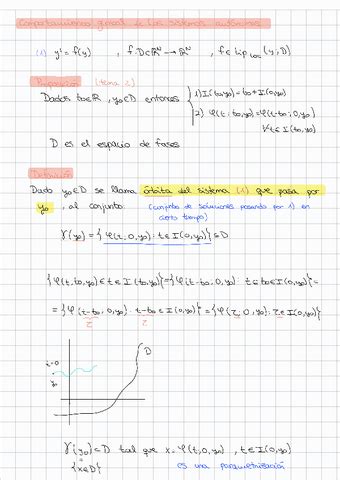 Comportamiento general de los sistemas autónomos
(1) y' = f(y) , f: D⊂ℝᴺ → ℝᴺ , f ∈ Lip loc (y, D)
Proposición (tema 2)
Dados to∈ℝ, yo∈D entonces { 1) I(to,yo) = to + I(0,yo)
2) φ(t; to,yo) = φ(t-to; 0,yo)
∀t ∈ I(to,yo)
D es el espacio de fases
Definición
Dado yo∈D se llama órbita del sistema (1) que pasa por
yo, al conjunto: (conjunto de soluciones pasando por 1) en
cierto tiempo)
γ(yo) = {φ(t; 0,yo): t ∈ I(0,yo)} ⊆ D
{φ(t; to,yo): t ∈ I(to,yo)} = {φ(t-to; 0,yo): t ∈ to+I(0,yo)} =
= {φ(t-to; 0,yo): t-to ∈ I(0,yo)} = {φ(τ; 0,yo): τ ∈ I(0,yo)}
τ τ
t=0
D
yo
γ(yo) ⊂ D tal que x = φ(t; 0,yo) , t ∈ I(0,yo)
{x∈D} es una parametrización